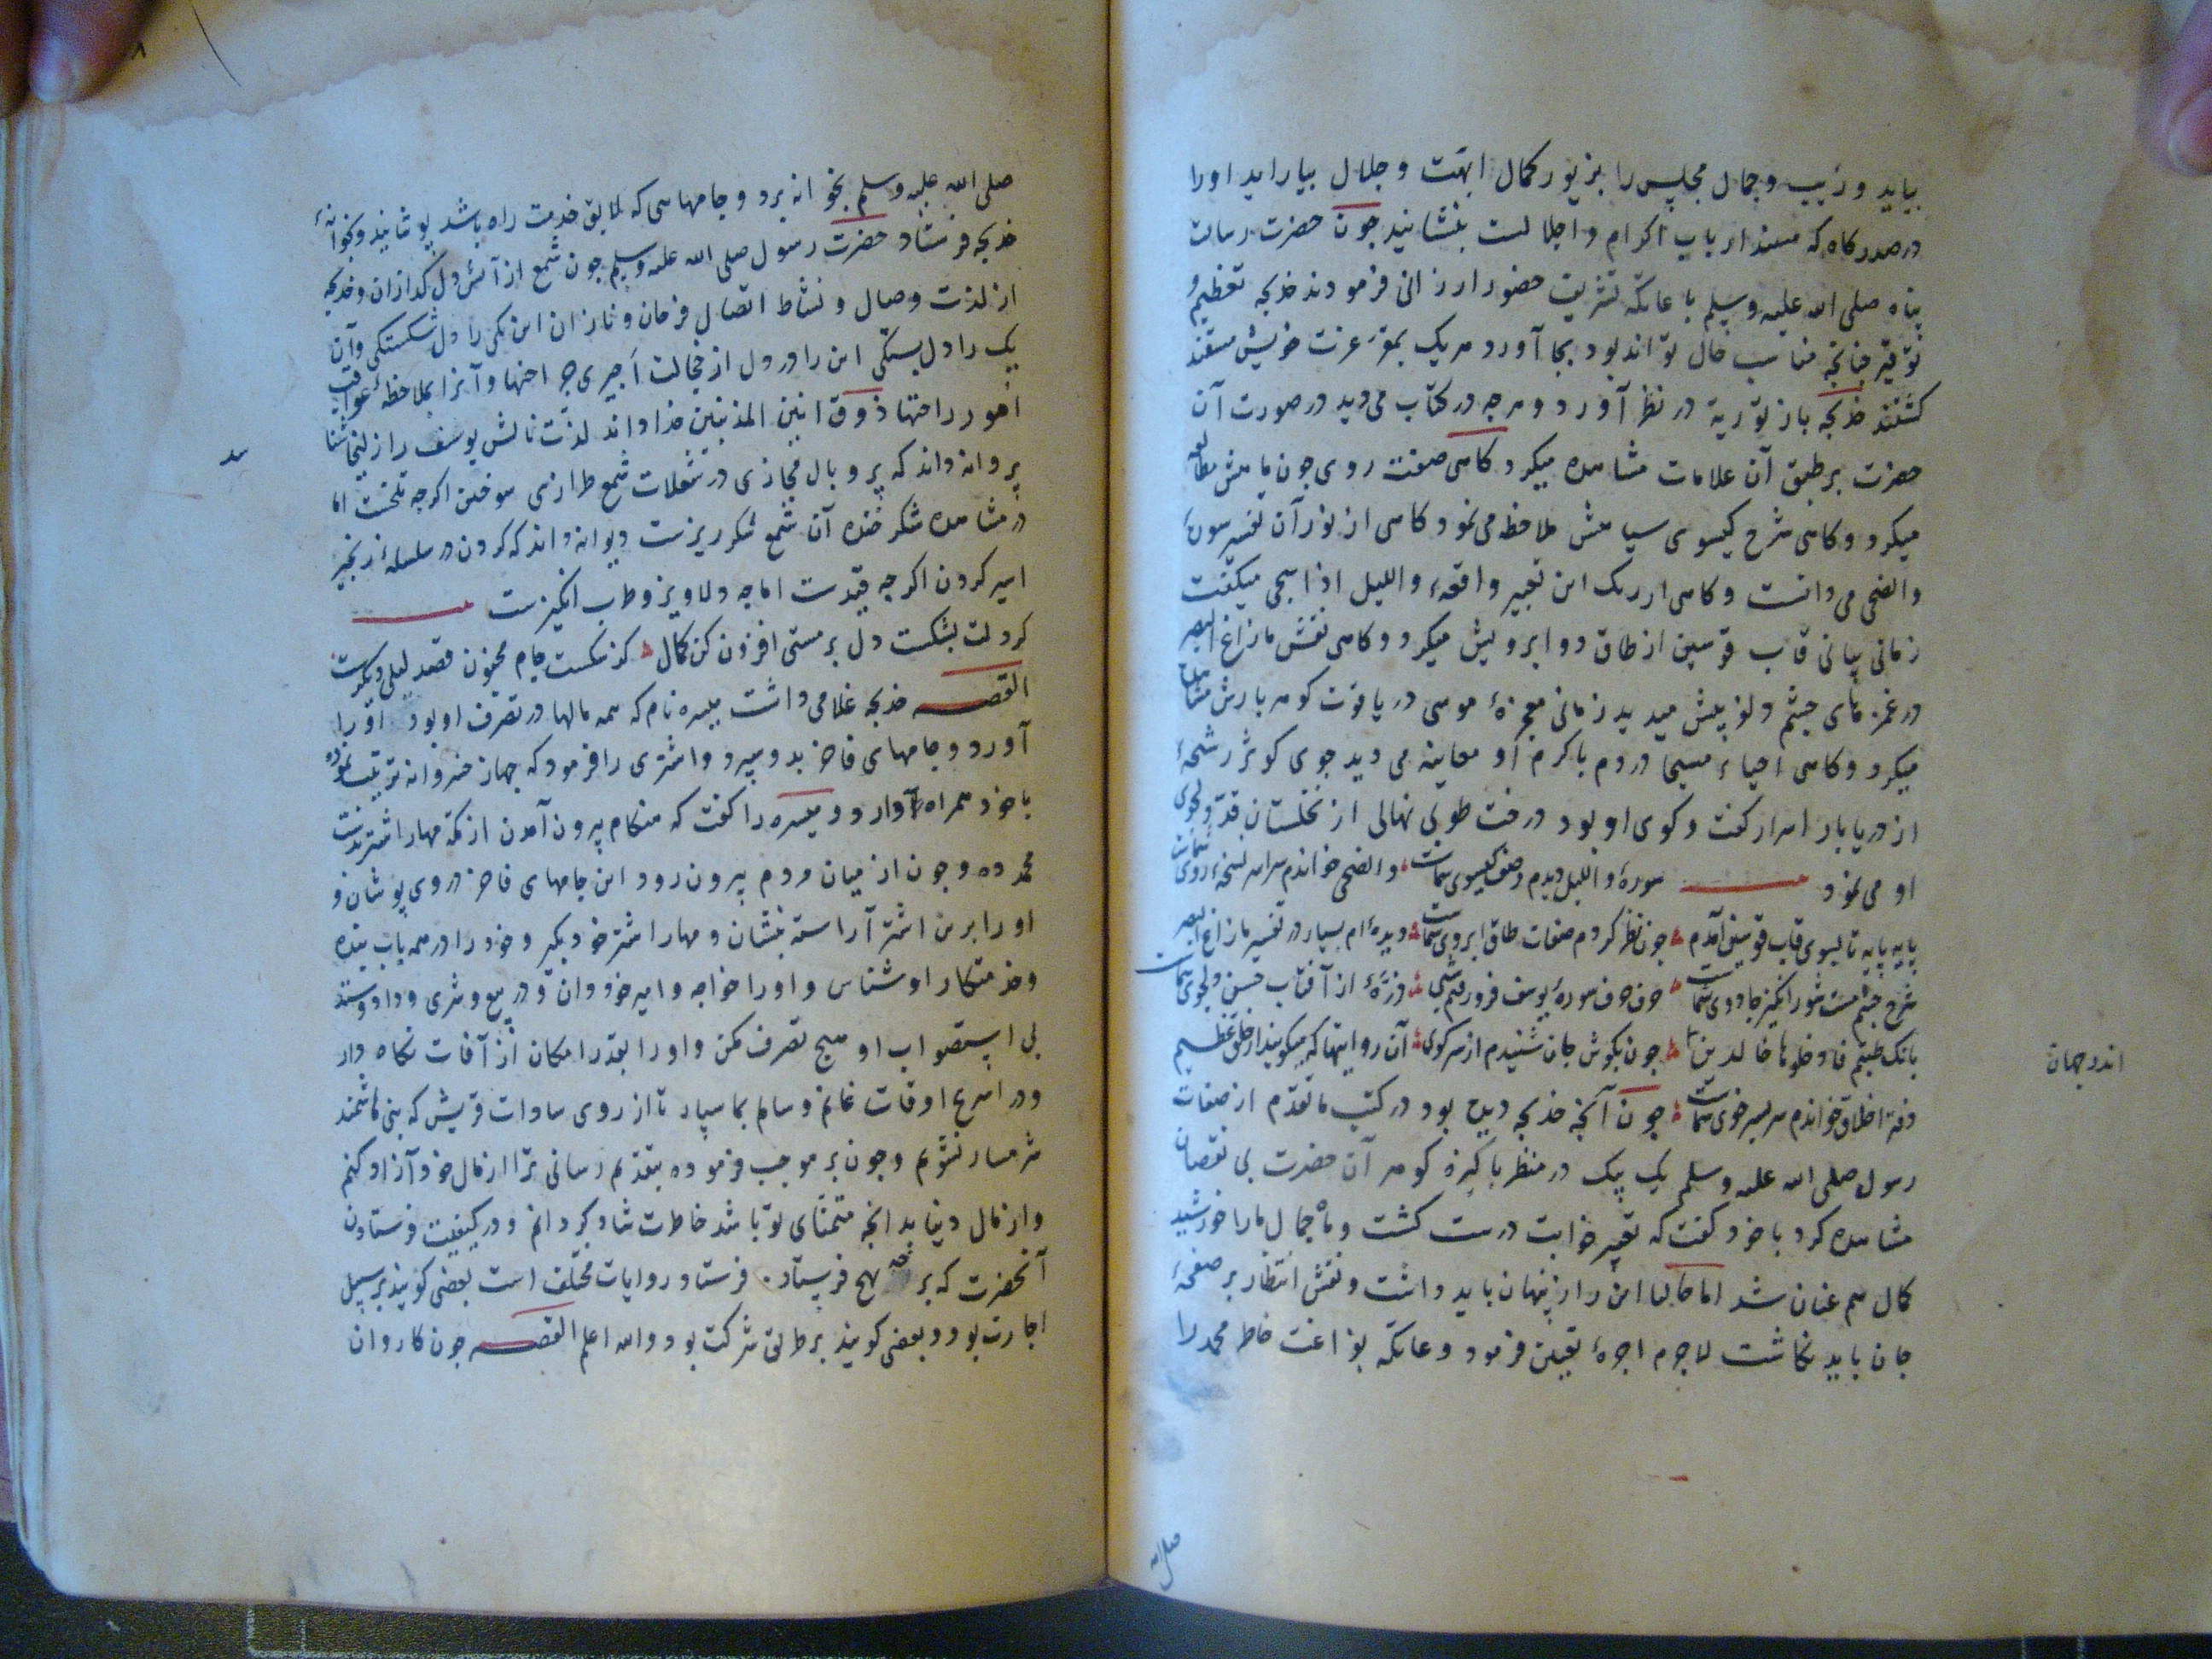 بیاید و زیب و جمال مجلس را بزیور کمال ابهّت و جلال بیاراید او را
در صدر کاه که مسند ارباب اکرام و اجلالست بنشانید جون حضرت رسالت
پناه صلی الله علیه وسلم با عاتکه تشریف حضور ارزانی فرمودند خدیجه تعظیم و
توقیر جنانجه مناسب حال تواند بود بجا آورد هر یک بمقر عزت خویش مستند
کشتند خدیجه باز توریة در نظر آورد و هرجه در کتاب می دید در صورت آن
حضرت بر طبق آن علامات مشاهده میکرد کاهی صفت روی جون ماهش مطالعه
میکرد و کاهی شرح کیسوی سیاهش ملاحظه می نمود کاهی از نور آن تفسیر سورهٔ
والضحی می دانست و کاهی از رنک این تعبیر واقعهٔ واللیل اذا سجی میکفت
زمانی بیانی قاب قوسین از طاق دو ابرویش میکرد و کاهی نقش مازاغ البصر
در غمزهای جشم دلفریبش میدید زمانی معجزهٔ موسی در یاقوت کوهر بارش مشاهده
میکرد و کاهی احیاء مسیحا در دم با کرم او معاینه می دید جوی کوثر رشحهٔ
از دریا بار اسرار کفت و کوی او بود درخت طوبی نهالی از نخلستان قدّ دلجوی
او می نمود سورهٔ واللیل دیدم وصف کیسوی شماست والضحی خواندم سراسر نسخهٔ روی شماست
پایه پایه تا بسوی قاب قوسین آمدم جون نظر کردم صفات طاق ابروی شماست دیده‌ام بسیار در تفسیر مازاغ البصر
شرح جشم مست شورانکیز جادوی شماست حرف حرف سورهٔ یوسف فرو رفتم شبی ذرّهٔ از آفتاب حسن دلجوی شماست
بانک طبتم فادخلوها خالدین جون بکوش جان شنیدم از سر کوی آن روایتها که میکویند از خلق عظیم
اندر جهان
دفتر اخلاق خواندم سر بسر خوی شماست جون آنجه خدیجه دیده بود در کتب ما تقدّم از صفات
رسول صلی الله علیه وسلم یک یک در منظر پاکیزه کوهر آن حضرت بی نقصان
مشاهده کرد با خود کفت که تعبیر خوابت درست کشت و ماه جمال ما را خورشید
کمال هم عنان شد اما حالیا این راز پنهان باید داشت و نقش انتظار بر صفحهٔ
جان باید نکاشت لاجرم اجرهٔ تعیین فرمود و عاتکه بفراغت خاطر محمد را
صلی الله
صلی الله علیه وسلم بخانه برد و جامهایی که لایق خدمت راه باشد پوشانید و بخانهٔ
خدیجه فرستاد حضرت رسول صلی الله علیه وسلم جون شمع از آتش دل کدازان و خدیجه
از لذت وصال و نشاط اتصال فرحان و نازان این یکی را دل شکستکی و آن
یک را دل بستکی این را در دل از خجالت اجیری جراحتها و آنرا بملاحظهٔ عواقب
امور راحتها ذوق انین المذنبین خدا داند لذّت نالش یوسف را زلیخا شنا
پروانه داند که پر و بال مجازی در شعلات شمع طرازی سوختن اکرجه تلخست اما
در مشاهده شکر خنده آن شمع شکر ریزست دیوانه داند که کردن در سلسلهٔ زنجیر
اسیر کردن اکرجه قیدست اماجه دلاویز و طرب انکیزست
کر دلت بشکست دل بر مستی افزون کن کمال کز شکست جام مجنون قصد لیلی دیکرست
القصه خدیجه غلامی داشت میسره نام که همه مالها در تصرف او بود او را
آورد و جامهای فاخر بدو سپرد و اشتری را فرمود که جهاز خسروانه ترتیب نموده
با خود همراه آوارد و میسره را کفت که هنکام بیرون آمدن از مکّه مهار اشتر بدست
محمد ده و جون از میان مردم بیرون رود این جامهای فاخر در وی پوشان و
او را برین اشتر آراسته بنشان و مهار اشتر خود بکیر و خود را در همه باب بنده
و خدمتکار او شناس و او را خواجه و امیر خود دان و در بیع و شری و داد و ستد
بی استصواب او هیج تصرف مکن و او را بقدر امکان از آفات نکاه دار
و در اسرع اوقات غانم و سالم بما سپار تا از روی سادات قریش که بنی هاشمند
شرمسار نشوم و جون بر موجب فرموده بتقدیم رسانی ترا از مال خود آزاد کنم
و از مال دنیا بدانجه متمنّای تو باشد خاطرت شاد کردانم و در کیفیت فرستادن
آنحضرت که بر جه نهج فرستاد فرستاد روایات مختلف است بعضی کویند بر سبیل
اجارت بود و بعضی کویند بر طریق شرکت بود والله اعلم القصه جون کاروان